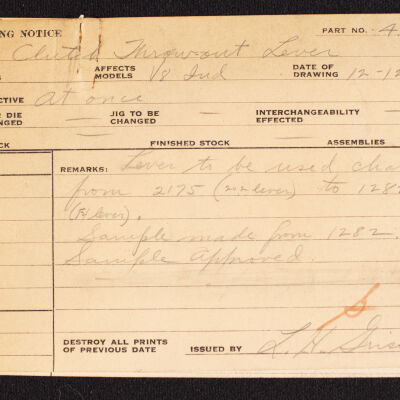 NG NOTICE PART NO. 4
Clutch Throwout Lever
AFFECTS MODELS V8 Ind DATE OF DRAWING 12-12
CTIVE At once
DIE NGED JIG TO BE CHANGED INTERCHANGEABILITY EFFECTED
CK FINISHED STOCK ASSEMBLIES
REMARKS: Lever to be used cha
from 2175 ( lever) to 128
( lever).
Sample made from 1282.
Sample Approved.
DESTROY ALL PRINTS
OF PREVIOUS DATE ISSUED BY L. H.